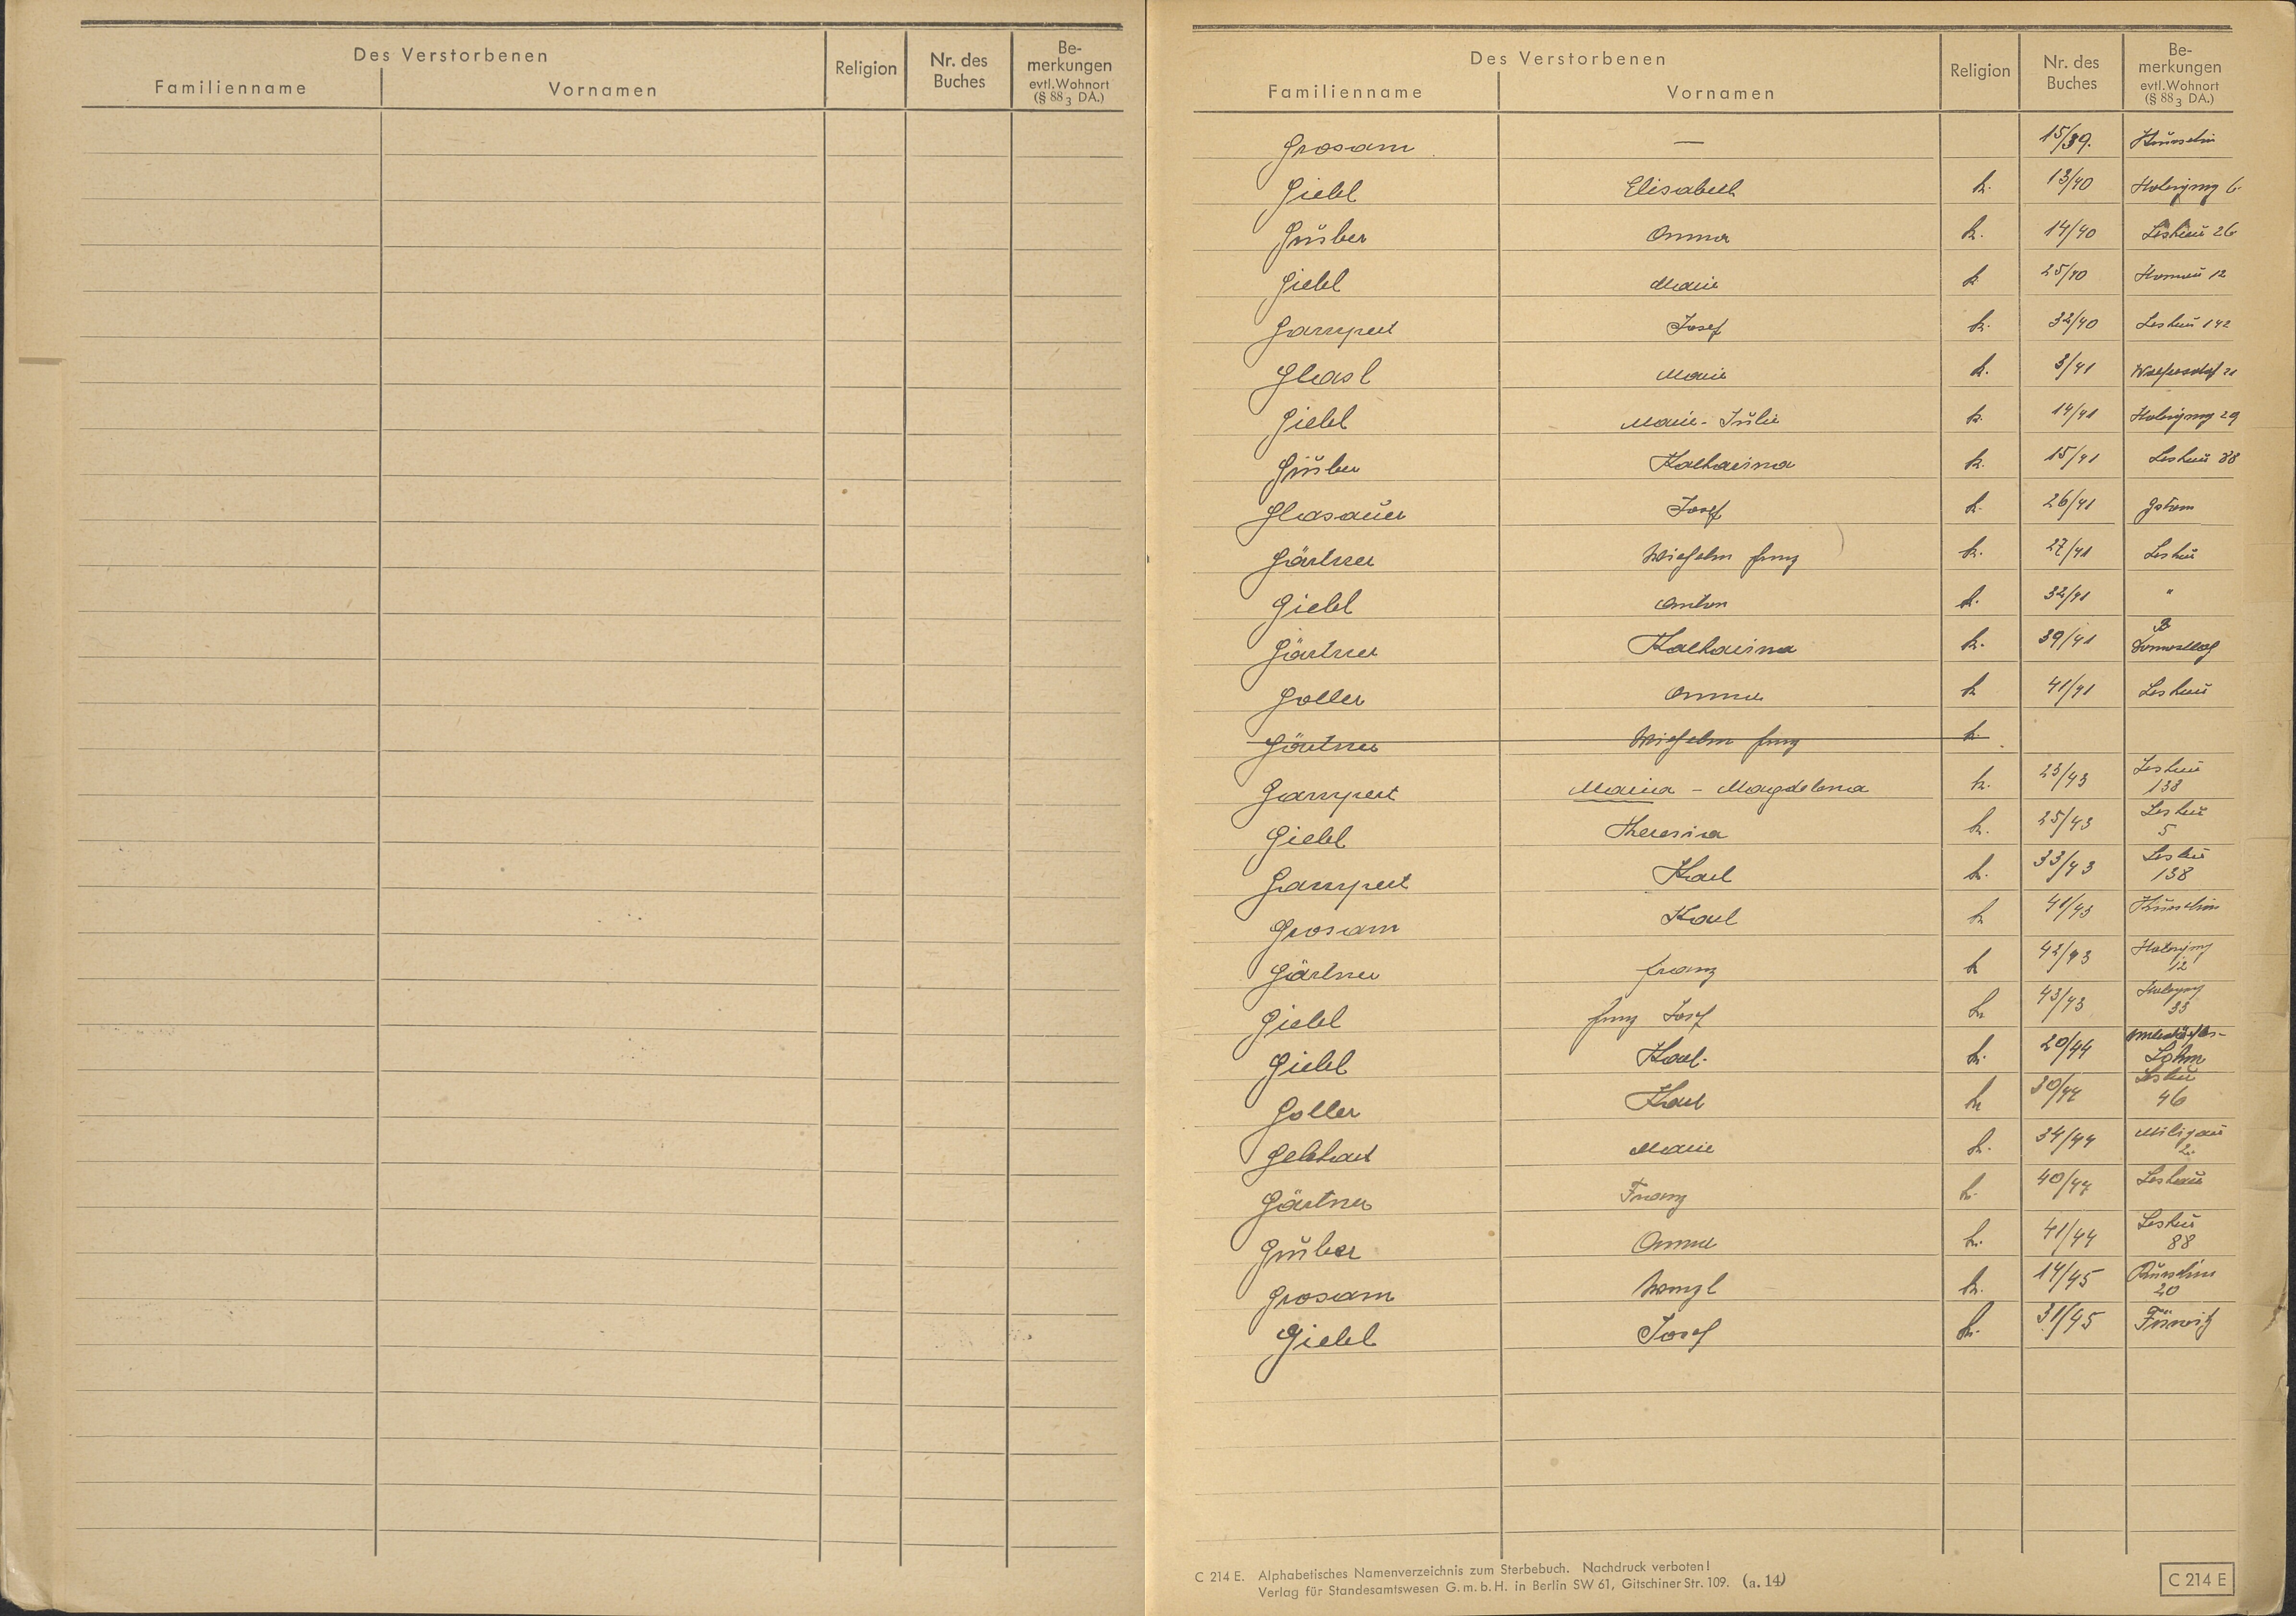 Des Verstorbenen
Familienname Vornamen Religion Nr. des Buches Be-merkungen evtl. Wohnort (§ 88 3 DA.)
Des Verstorbenen
Familienname Vornamen Religion Nr. des Buches Be-merkungen evtl. Wohnort (§ 88 3 DA.)
Grosam — 15/39.
Giebl Elisabeth k. 13/40 6
Gruber Anna k. 14/40 26
Giebl Marie k. 25/40 12
Gampert Josef k. 32/40 142
Glasl Marie k. 3/41 21
Giebl Marie-Julie k. 14/41 29
Gruber Katharina k. 15/41 88
Glasauer Josef k. 26/41
Gärtner Wilhelm Franz k. 27/41
Giebl Anton k. 32/41 "
Gärtner Katharina k. 39/41
Goller Anna k 41/41
Gärtner Wilhelm Franz k.
Gampert Maria - Magdalena k. 23/43 138
Giebl Theresia k. 25/43 5
Gampert Karl k. 33/43 138
Grosam Karl k 41/43
Gärtner Franz k 42/43 12
Giebl Franz Josef k 43/43 33
Giebl Karl k. 20/44
Goller Karl k 30/44 46
Gebhart Marie k. 34/44 2.
Gärtner Franz k. 40/44
Gruber Anna k. 41/44 88
Grosam Wenzl k. 14/45 20
Giebl Josef k. 31/45
C 214 E. Alphabetisches Namenverzeichnis zum Sterbebuch. Nachdruck verboten!
Verlag für Standesamtswesen G. m. b. H. in Berlin SW 61, Gitschiner Str. 109. (a. 14)
C 214 E